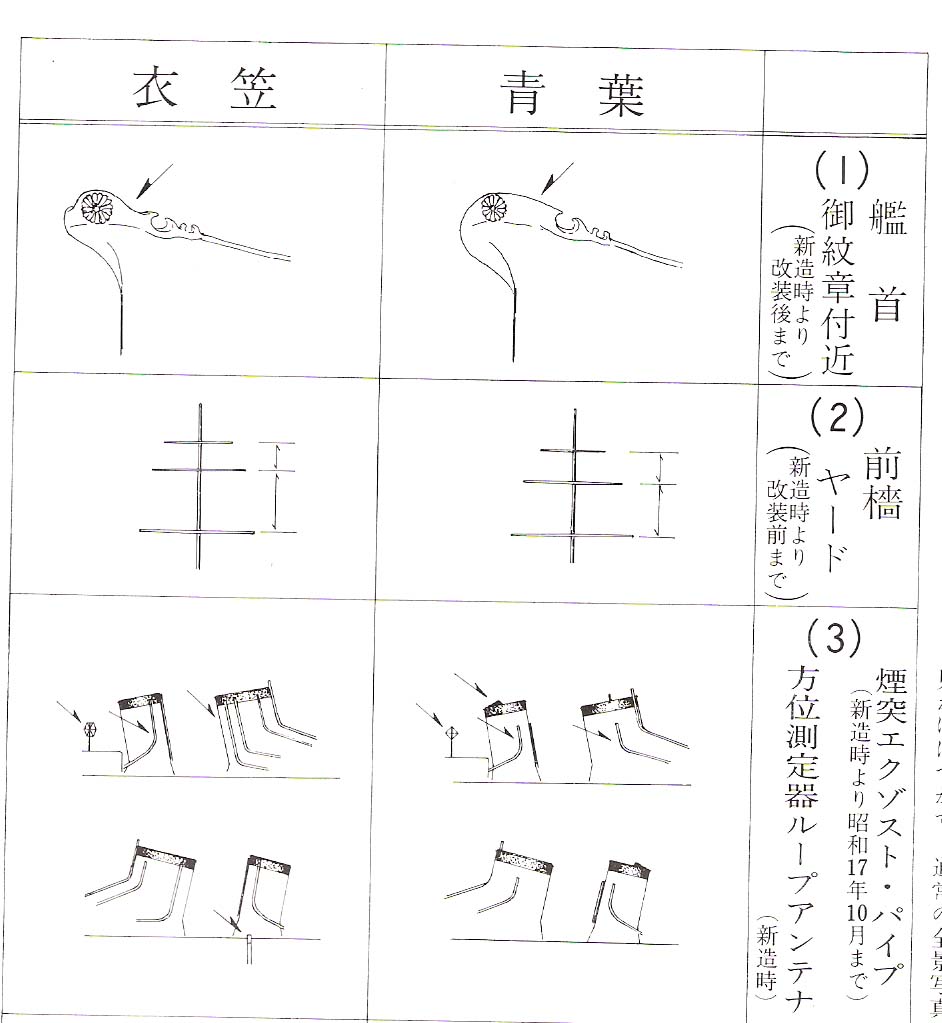 衣笠
青葉
(1)
艦首
御紋章付近
(新造時より
改装後まで)
(2)
前檣
ヤード
(新造時より
改装前まで)
(3)
煙突エクゾスト・パイプ
(新造時より昭和17年10月まで)
方位測定器ループアンテナ
(新造時)